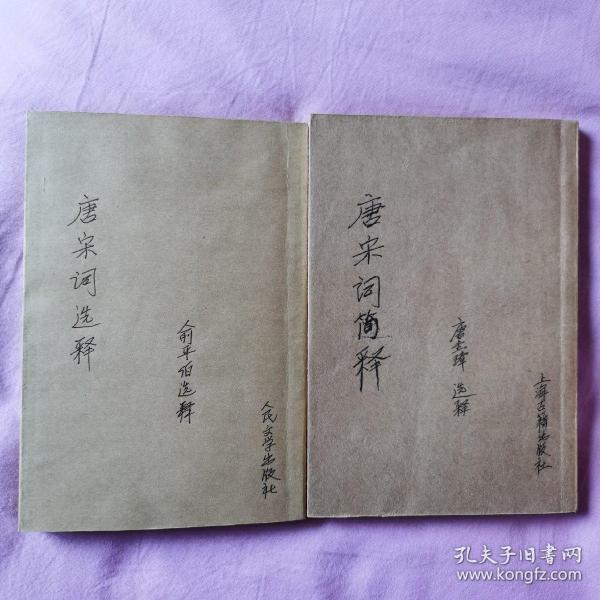 唐宋词选释
俞平伯选释
人民文学出版社
唐宋词简释
唐圭璋 选释
上海古籍出版社
孔夫子旧书网
www.kongfz.com